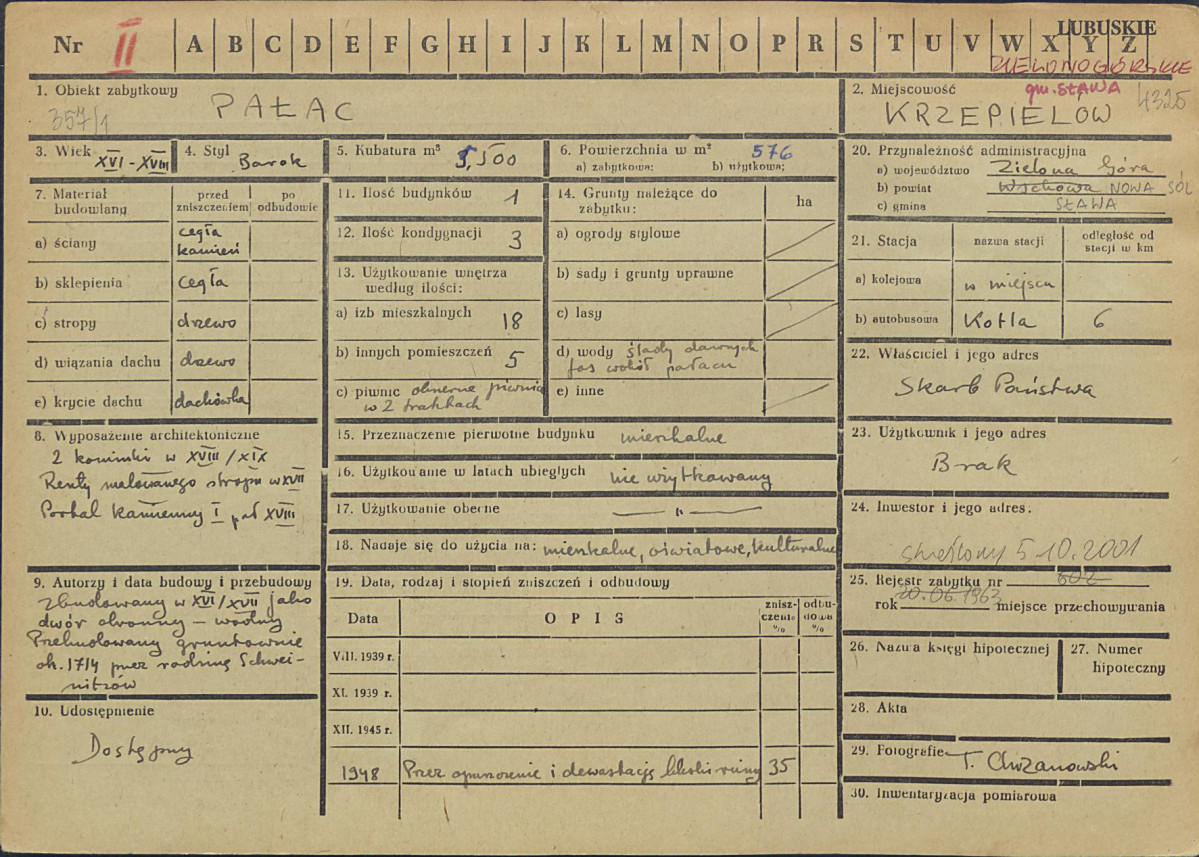 Nr II A B C D E F G H I J K L M N O P R S T U V W X Y Z
LUBUSKIE
ZIELONOGÓRSKIE
1. Obiekt zabytkowy
357/1
PAŁAC
2. Miejscowość
gm. SŁAWA
4325
KRZEPIELÓW
3. Wiek XVI - XVIII
4. Styl Barok
5. Kubatura m³ 5,500
6. Powierzchnia w m² 576
a) zabytkowa: b) użytkowa:
7. Materiał budowlany
przed zniszczeniem
po odbudowie
a) ściany cegła kamień
b) sklepienia cegła
c) stropy drzewo
d) wiązania dachu drzewo
e) krycie dachu dachówka
8. Wyposażenie architektoniczne
2 kominki w XVIII/XIX
Reszty malowanego stropu w XVII
Portal kamienny I poł XVIII
9. Autorzy i data budowy i przebudowy
Zbudowany w XVI/XVII jako
dwór obronny - wodny
Przebudowany gruntownie
ok. 1714 przez rodzinę Schwei-
nitzów
10. Udostępnienie
Dostępny
11. Ilość budynków 1
12. Ilość kondygnacji 3
13. Użytkowanie wnętrza
według ilości:
a) izb mieszkalnych 18
b) innych pomieszczeń 5
c) piwnic obszerne piwnice
w 2 traktach
14. Grunty należące do
zabytku:
ha
a) ogrody stylowe
b) sady i grunty uprawne
c) lasy
d) wody ślady dawnych
fos wokół pałacu
e) inne
15. Przeznaczenie pierwotne budynku mieszkalne
16. Użytkowanie w latach ubiegłych nie użytkowany
17. Użytkowanie obecne — " —
18. Nadaje się do użycia na: mieszkalne, oświatowe, kulturalne
19. Data, rodzaj i stopień zniszczeń i odbudowy
Data
OPIS
znisz-
czenie
%
odbu-
dowa
%
VIII. 1939 r.
XI. 1939 r.
XII. 1945 r.
1948 Przez opuszczenie i dewastację bliski ruiny 35
20. Przynależność administracyjna
a) województwo Zielona Góra
b) powiat Wschowa NOWA SÓL
c) gmina SŁAWA
21. Stacja
nazwa stacji
odległość od
stacji w km
a) kolejowa w miejscu
b) autobusowa Kotla 6
22. Właściciel i jego adres
Skarb Państwa
23. Użytkownik i jego adres
Brak
24. Inwestor i jego adres:
skreślony 5.10.2001
25. Rejestr zabytku nr 602
rok 20.06.1963 miejsce przechowywania
26. Nazwa księgi hipotecznej
27. Numer
hipoteczny
28. Akta
29. Fotografie T. Chrzanowski
30. Inwentaryzacja pomiarowa